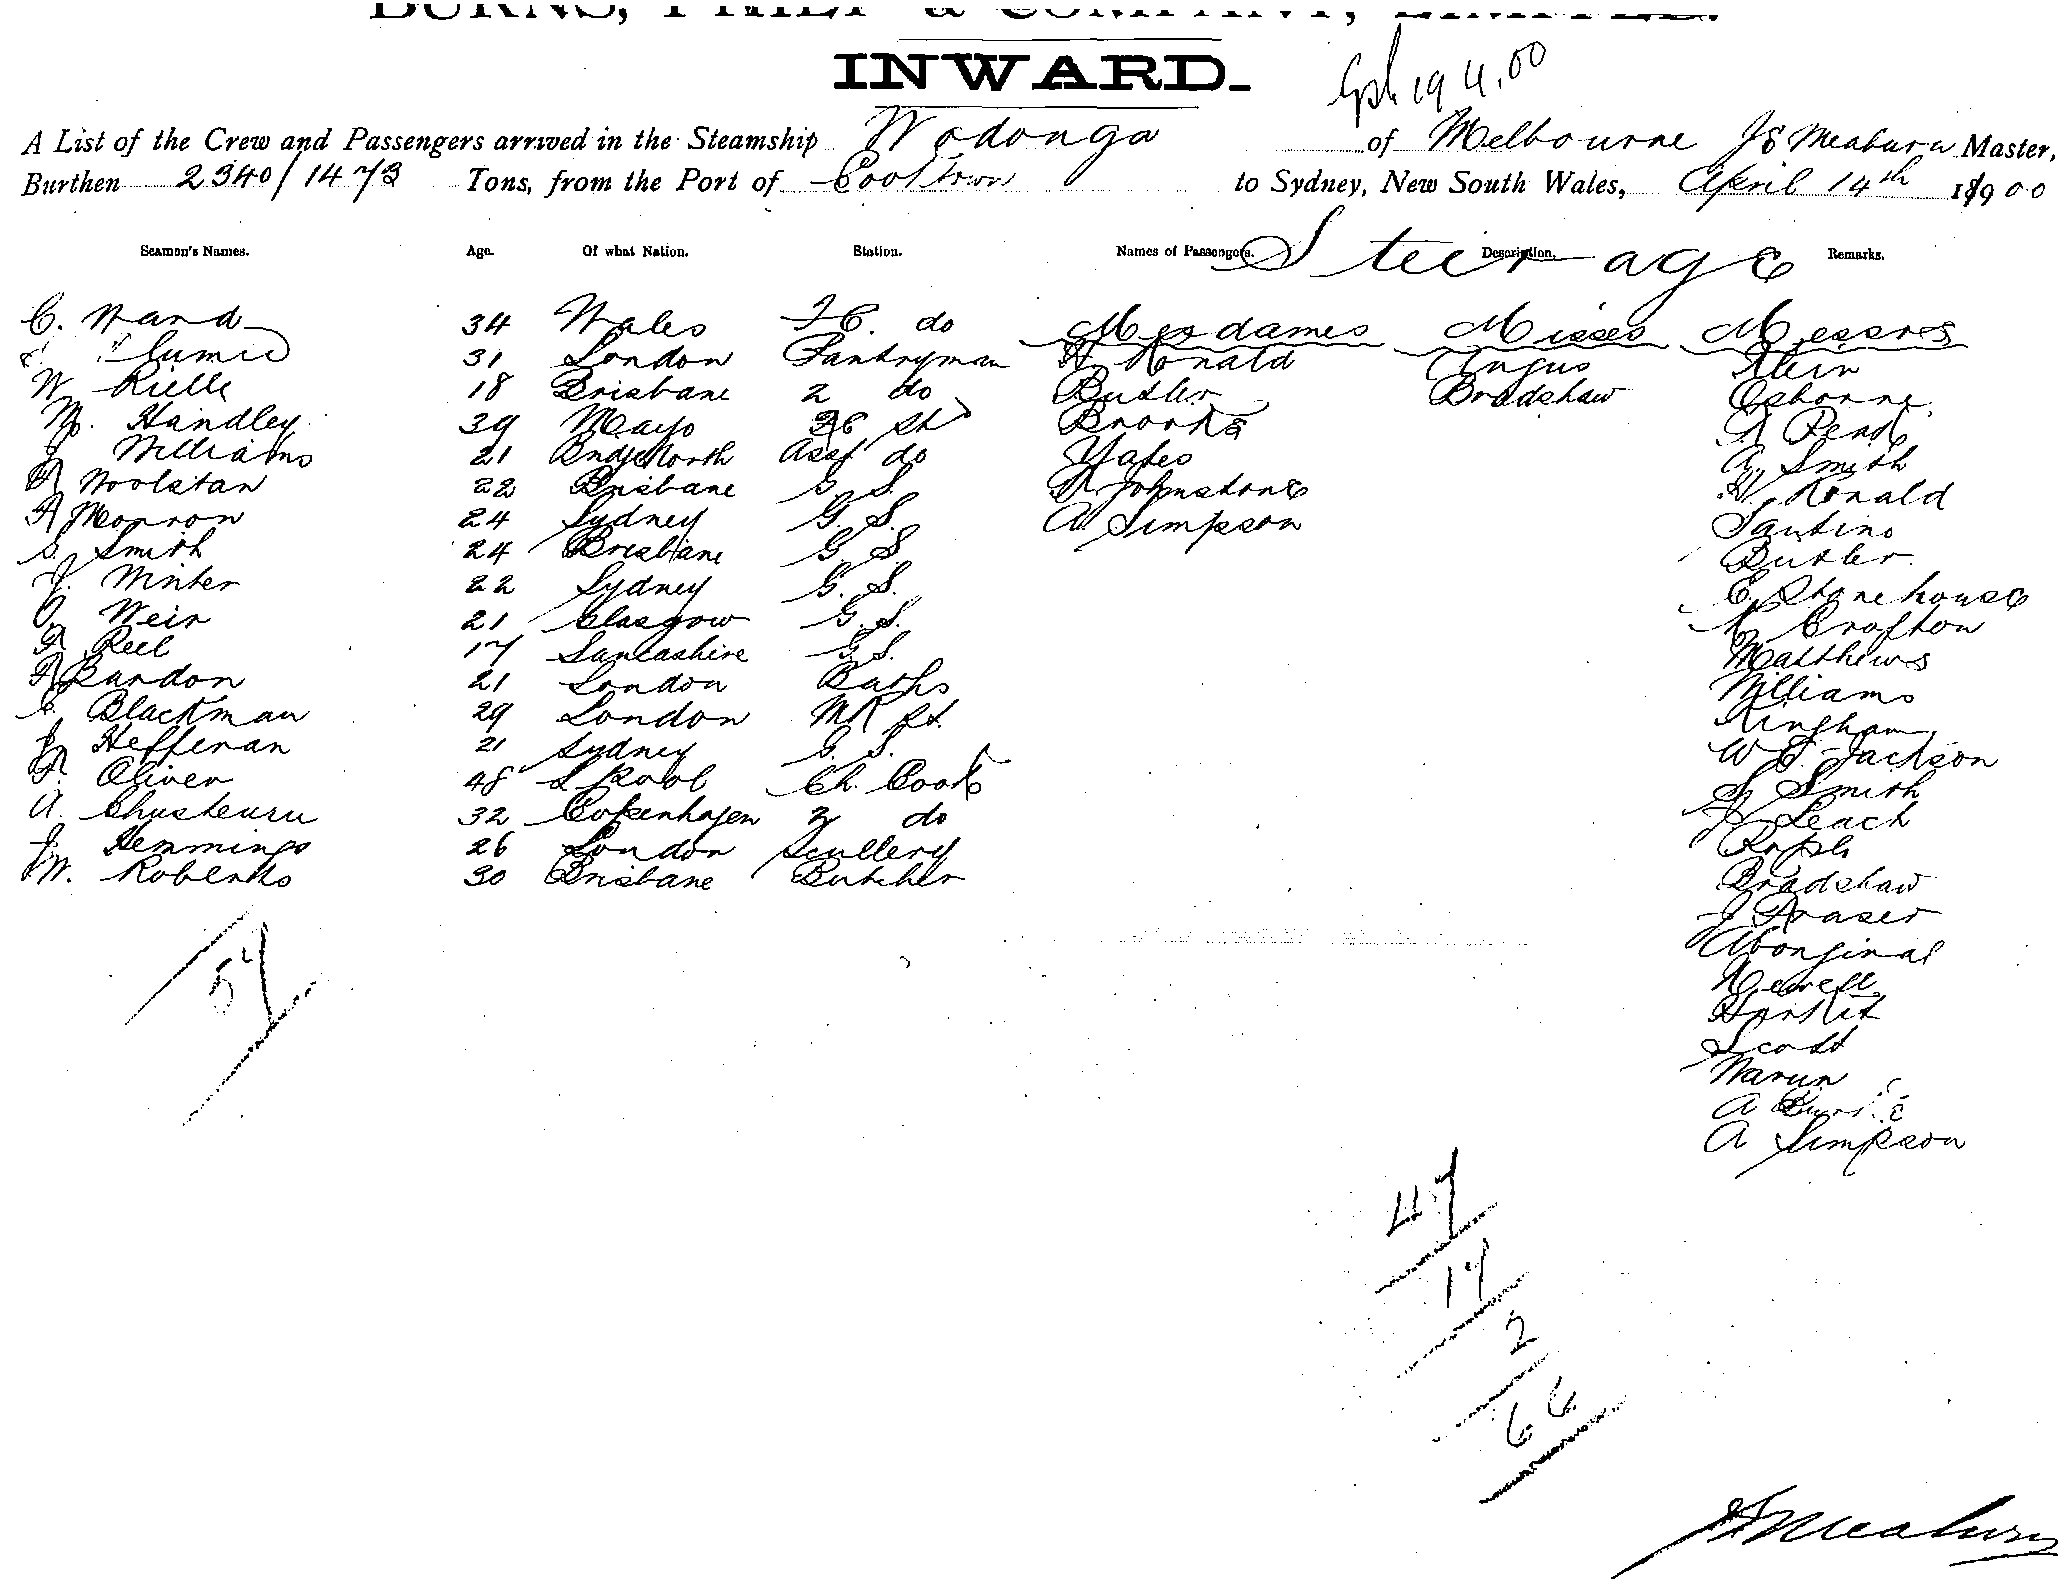 BURNS, PHILP & COMPANY, LIMITED.
INWARD.
19 4.00
A List of the Crew and Passengers arrived in the Steamship Wodonga of Melbourne JS Meaburn Master,
Burthen 2340/1473 Tons, from the Port of Cooktown to Sydney, New South Wales, April 14th 1900
Seamen's Names. Age. Of what Nation. Station. Names of Passengers. Description. Remarks.
Steirage
C. Ward 34 Wales F C. do Mesdames Misses Messres
31 London Pantryman Ronald Angus Klein
W Rielle 18 Brisbane 2 do Butler Bradshaw Osborne
M. Handley 39 Mayo St Brooks
J Williams 21 BridgeNorth Asst do Yates A. Smith
Woolstan 22 Brisbane G S. Johnstone W. Ronald
Morron 24 Sydney G. S. A Simpson Santino
S. Smith 24 Brisbane G S Butler
J. Winter 22 Sydney G. S. E. Stonehouse
Weir 21 Glasgow G. S. Crofton
Reel 17 Lancashire G S. Matthews
Random 21 London Baths Williams
Blackman 29 London MR St. Kingham
J Heffernan 21 Sydney G. S. W J. Jackson
F. Oliver 48 L Pool Ch. Cook S Smith
A. 32 Copenhagen 2 do Leach
J Hemmings 26 London Scullery
W. Roberts 30 Brisbane Butcher Bradshaw
J Fraser
Aboriginal
Newell
Scott
A
A Simpson
57
47
17
2
66
Meaburn